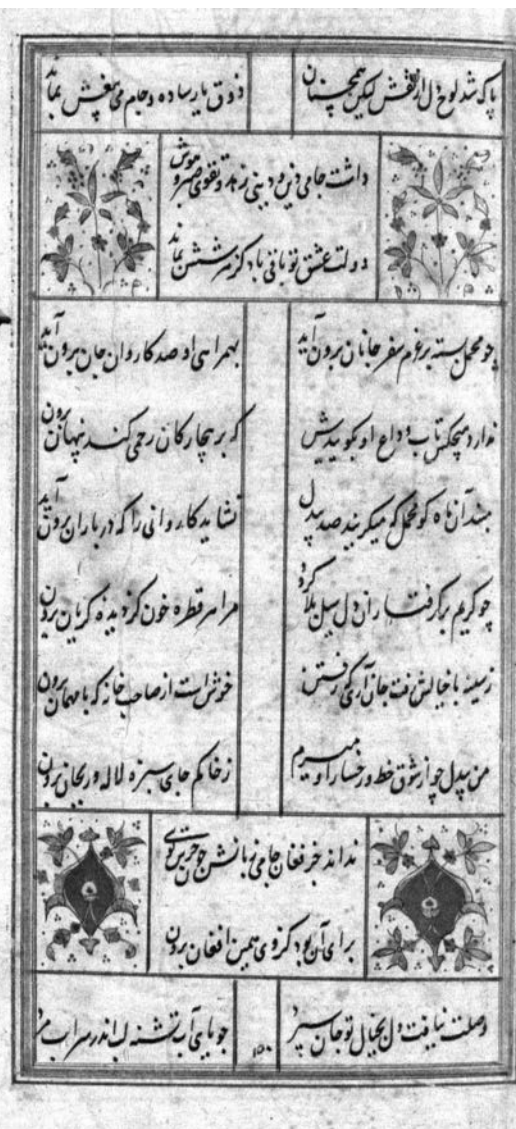 پاک شد لوح دل از هر نقش لیکن همچنان ذوق یار ساده و جام می بیغش بماند
داشت جامی دین و دنیی زهد و تقوی صبر و هوش
دولت عشق تو باقی باد کز هر شش بماند
چو محمل بسته بر عزم سفر جانان برون آید بهمراهی او صد کاروان جان برون آید
ندارد هیچکس تاب وداع او بکوییدش که بر بیچارکان رحمی کند پنهان برون
مبند آن ماه کو محمل که میکریند صد بیدل نشاید کاروانی را که در باران برون آید
چو کریم بر کرفتاران دل سیل بلا کردد مرا هر قطره خون کز دیده کریان برون
ز سینه با خیالش رفت جان آری که رفتن خوش است از صاحب خانه که با مهمان برون
من بیدل چو از شوق خط و رخسار او میرم ز خاکم جای سبزه لاله و ریحان برون
نداند جز فغان جامی زبانش چون جرس کویی
برای آن بود کز وی همین افغان برون
وصلت نیافت دل بخیال تو جان سپرد جویای آب تشنه لب اندر سراب
۱۵۰